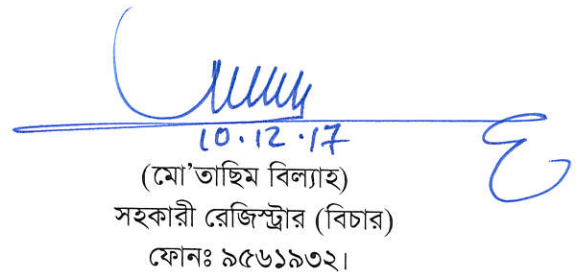 10.12.17
(মো'তাছিম বিল্যাহ)
সহকারী রেজিস্ট্রার (বিচার)
ফোনঃ ৯৫৬১৯৩২।